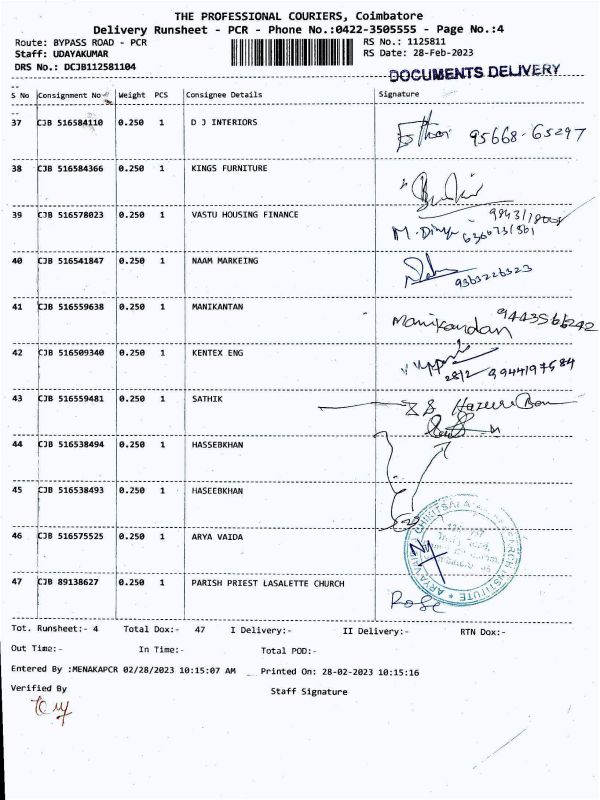 THE PROFESSIONAL COURIERS, Coimbatore
Delivery Runsheet - PCR - Phone No.:0422-3505555 - Page No.:4
Route: BYPASS ROAD - PCR RS No.: 1125811
Staff: UDAYAKUMAR RS Date: 28-Feb-2023
DRS No.: DCJB112581104
DOCUMENTS DELIVERY
S No Consignment No Weight PCS Consignee Details Signature
37 CJB 516584110 0.250 1 D J INTERIORS 95668-65297
38 CJB 516584366 0.250 1 KINGS FURNITURE
39 CJB 516578023 0.250 1 VASTU HOUSING FINANCE
40 CJB 516541847 0.250 1 NAAM MARKEING 9363226323
41 CJB 516559638 0.250 1 MANIKANTAN Manikandan 9443566242
42 CJB 516509340 0.250 1 KENTEX ENG 28/2 9944197584
43 CJB 516559481 0.250 1 SATHIK
44 CJB 516538494 0.250 1 HASSEBKHAN
45 CJB 516538493 0.250 1 HASEEBKHAN
46 CJB 516575525 0.250 1 ARYA VAIDA
47 CJB 89138627 0.250 1 PARISH PRIEST LASALETTE CHURCH Rose
Tot. Runsheet:- 4 Total Dox:- 47 I Delivery:- II Delivery:- RTN Dox:-
Out Time:- In Time:- Total POD:-
Entered By :MENAKAPCR 02/28/2023 10:15:07 AM Printed On: 28-02-2023 10:15:16
Verified By Staff Signature